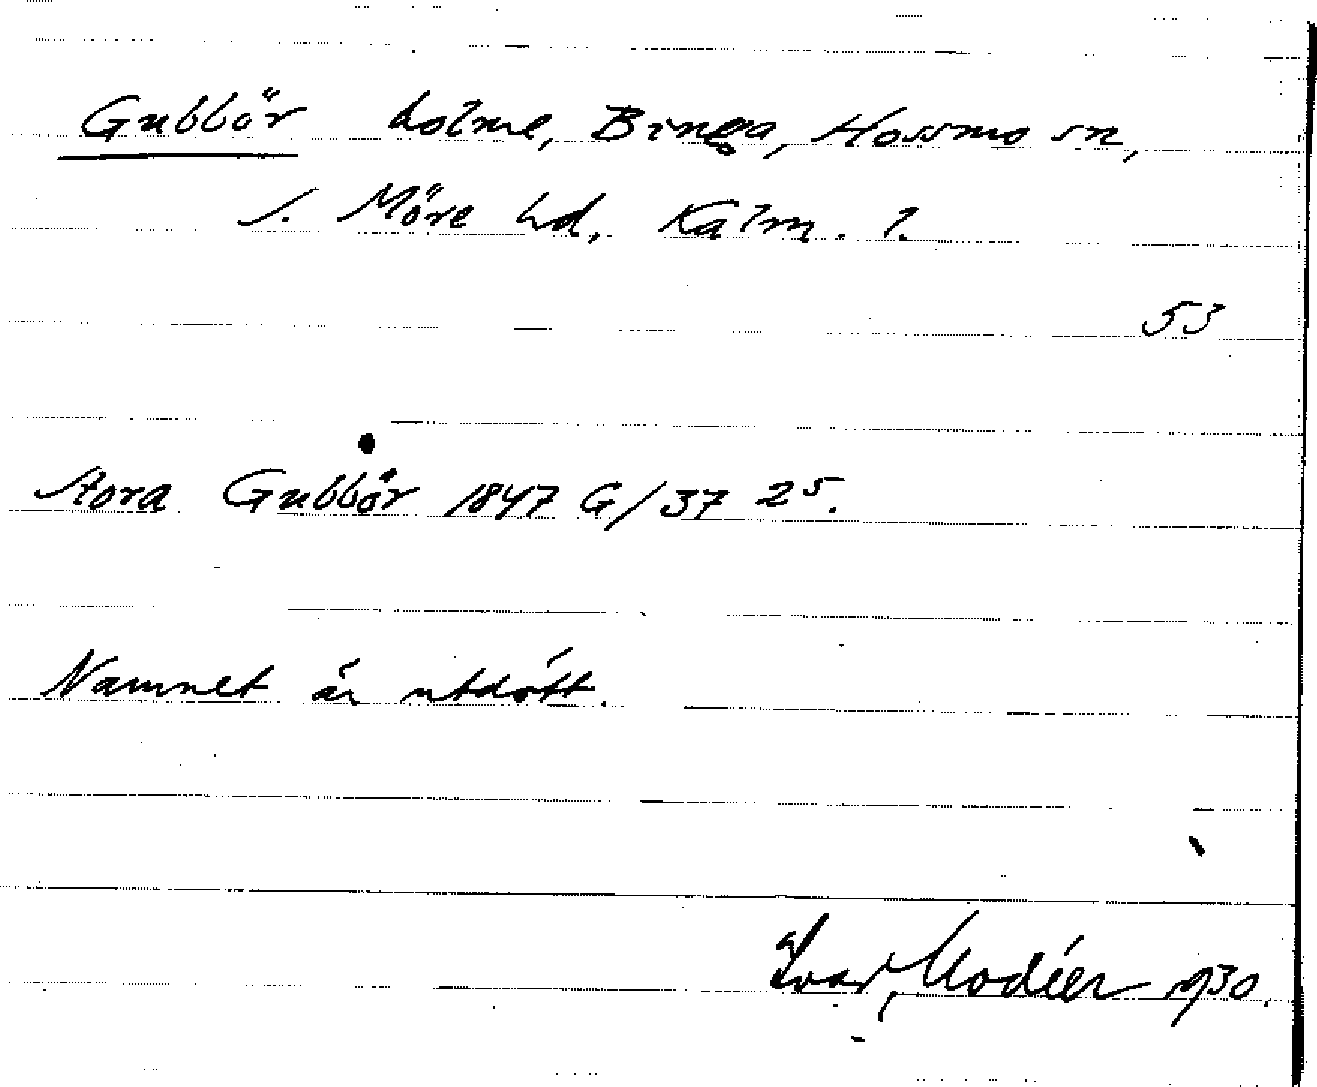 Gubbör holme, Binga, Hossmo sn,
S. Möre hd, Kalm. l.
53
Stora Gubbör 1847 G/37 2⁵.
Namnet är utdött.
Ivar Modéer 1930.